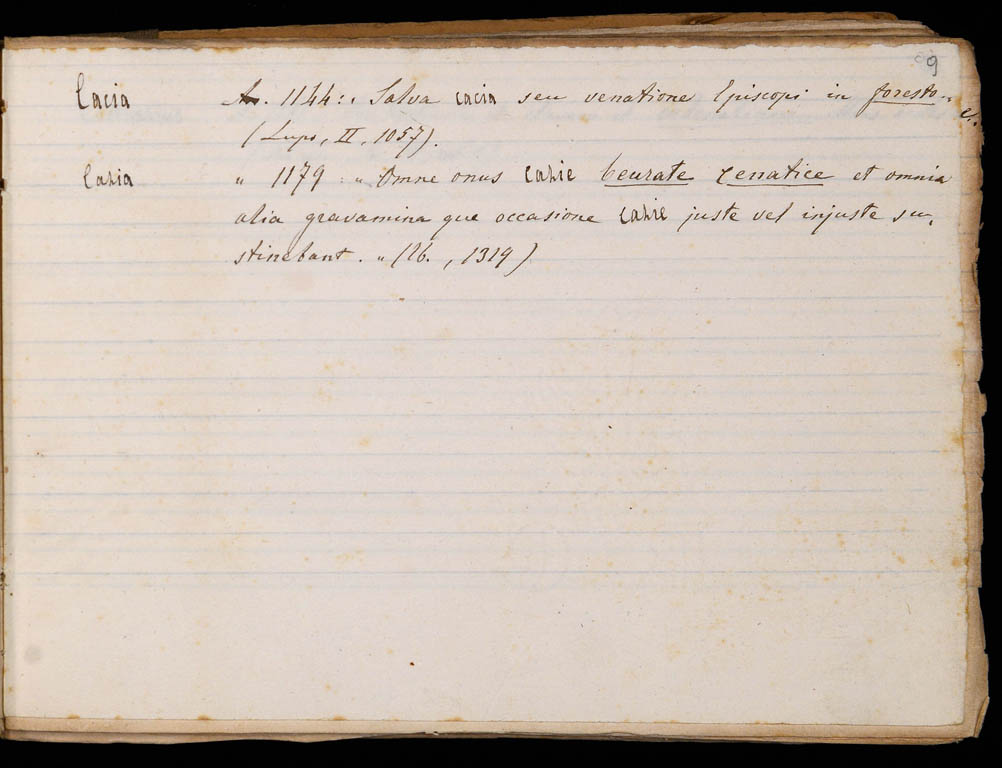 9
Cacia A. 1144: „ Salva cacia seu venatione Episcopi in foresto. „
(Lupo, II, 1057).
Cazia „ 1179 : „ Omne onus cazie beurate cenatice et omnia
alia gravamina que occasione cazie juste vel injuste su-
stinebant . „ (Ib. , 1319)